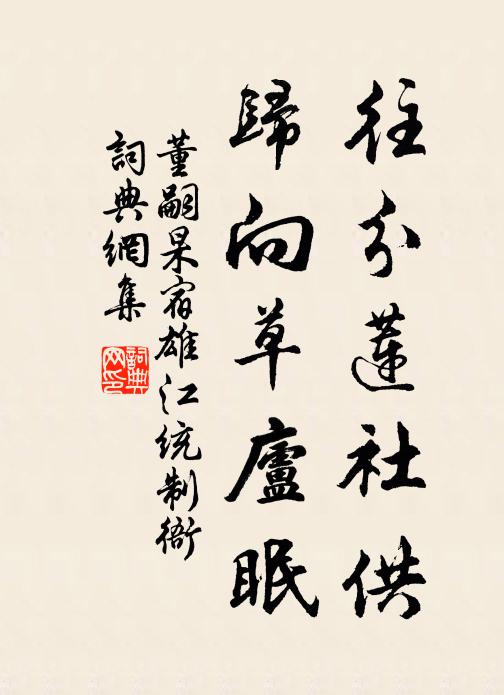 往分蓮社供
歸向草廬眠
董嗣杲宿雄江統制衙
詞典網集
詞典網印